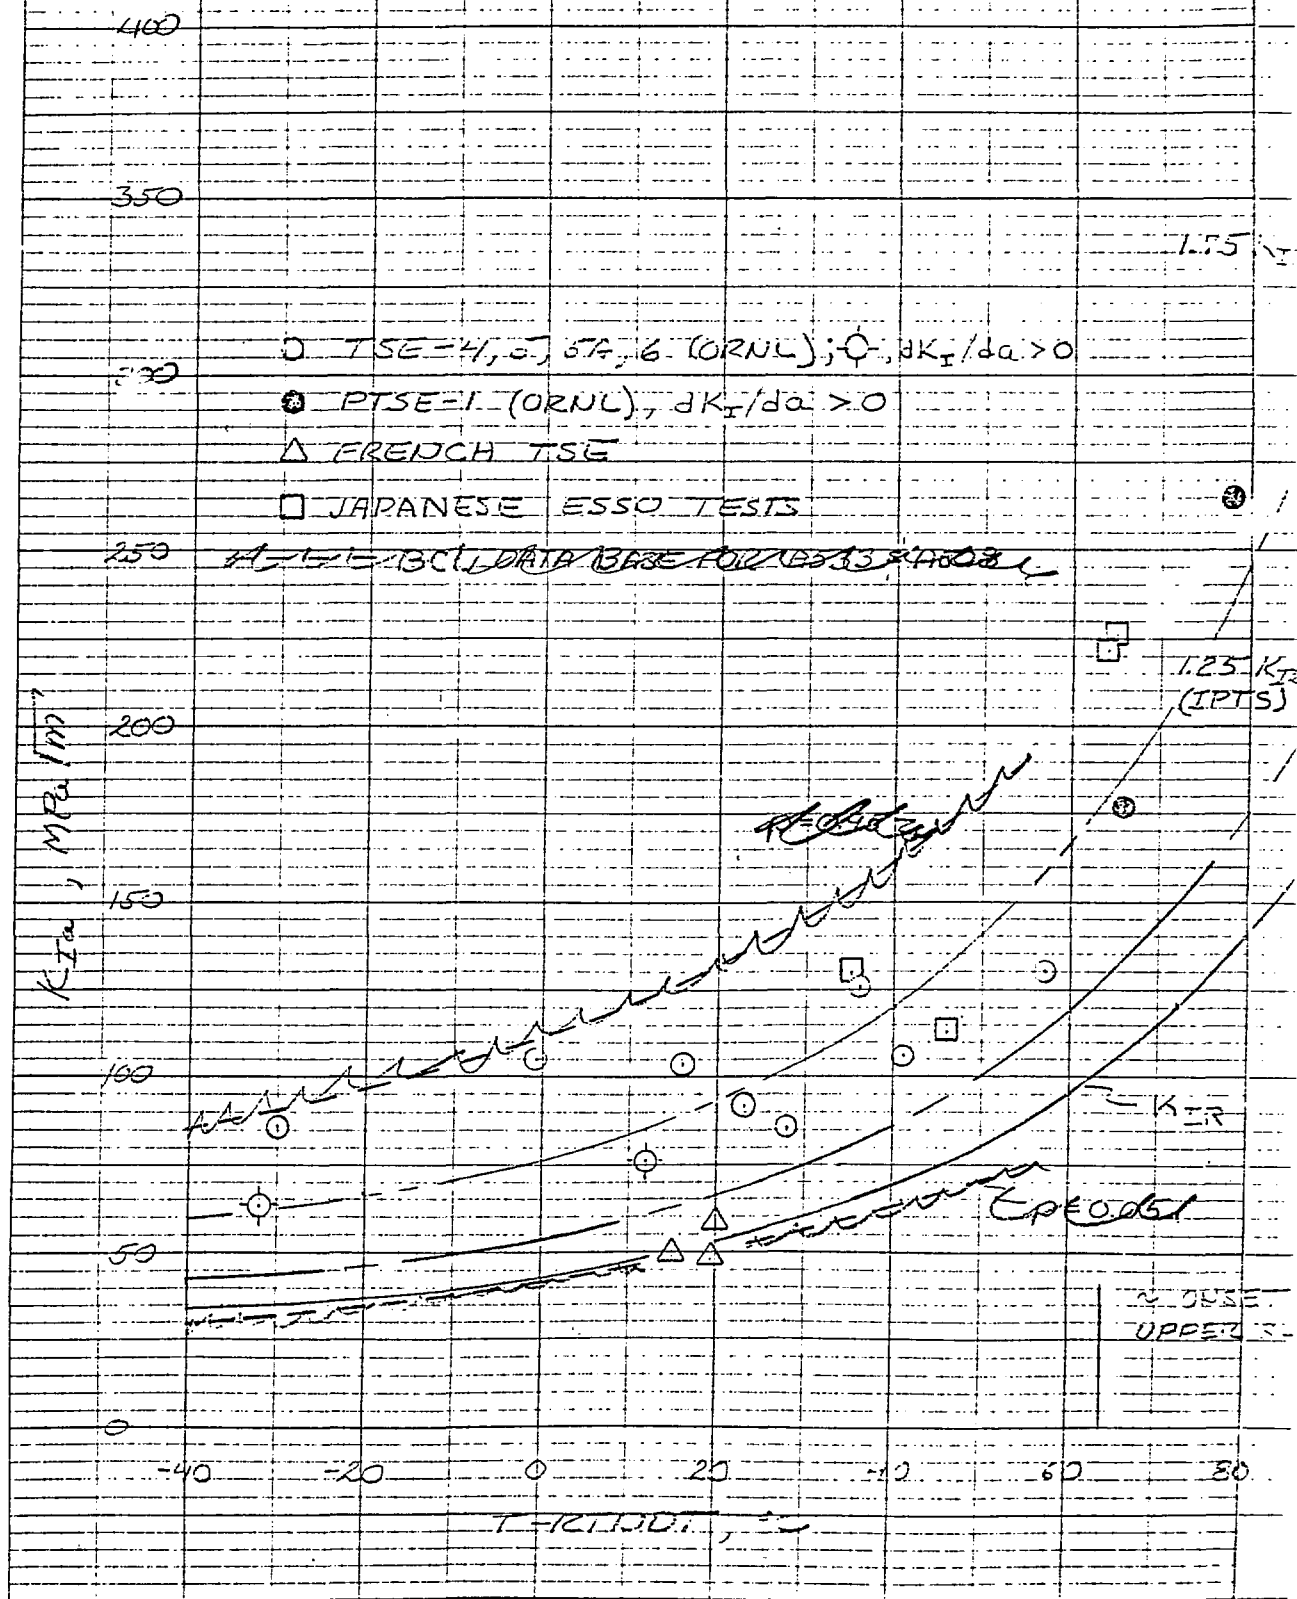 400
350
1.75 K_I
○ TSE-4, 5, 5A, 6 (ORNL); -○-, dK_I/da > 0
300
● PTSE-1 (ORNL), dK_I/da > 0
△ FRENCH TSE
□ JAPANESE ESSO TESTS
250
BCL DATA BASE FOR A533 & A508
1.25 K_I
(IPTS)
200
K_Ia, MPa √m
150
100
K_IR
p=0.05
50
~ ONSE
UPPER
0
-40 -20 0 20 40 60 80
T-RTNDT, °C